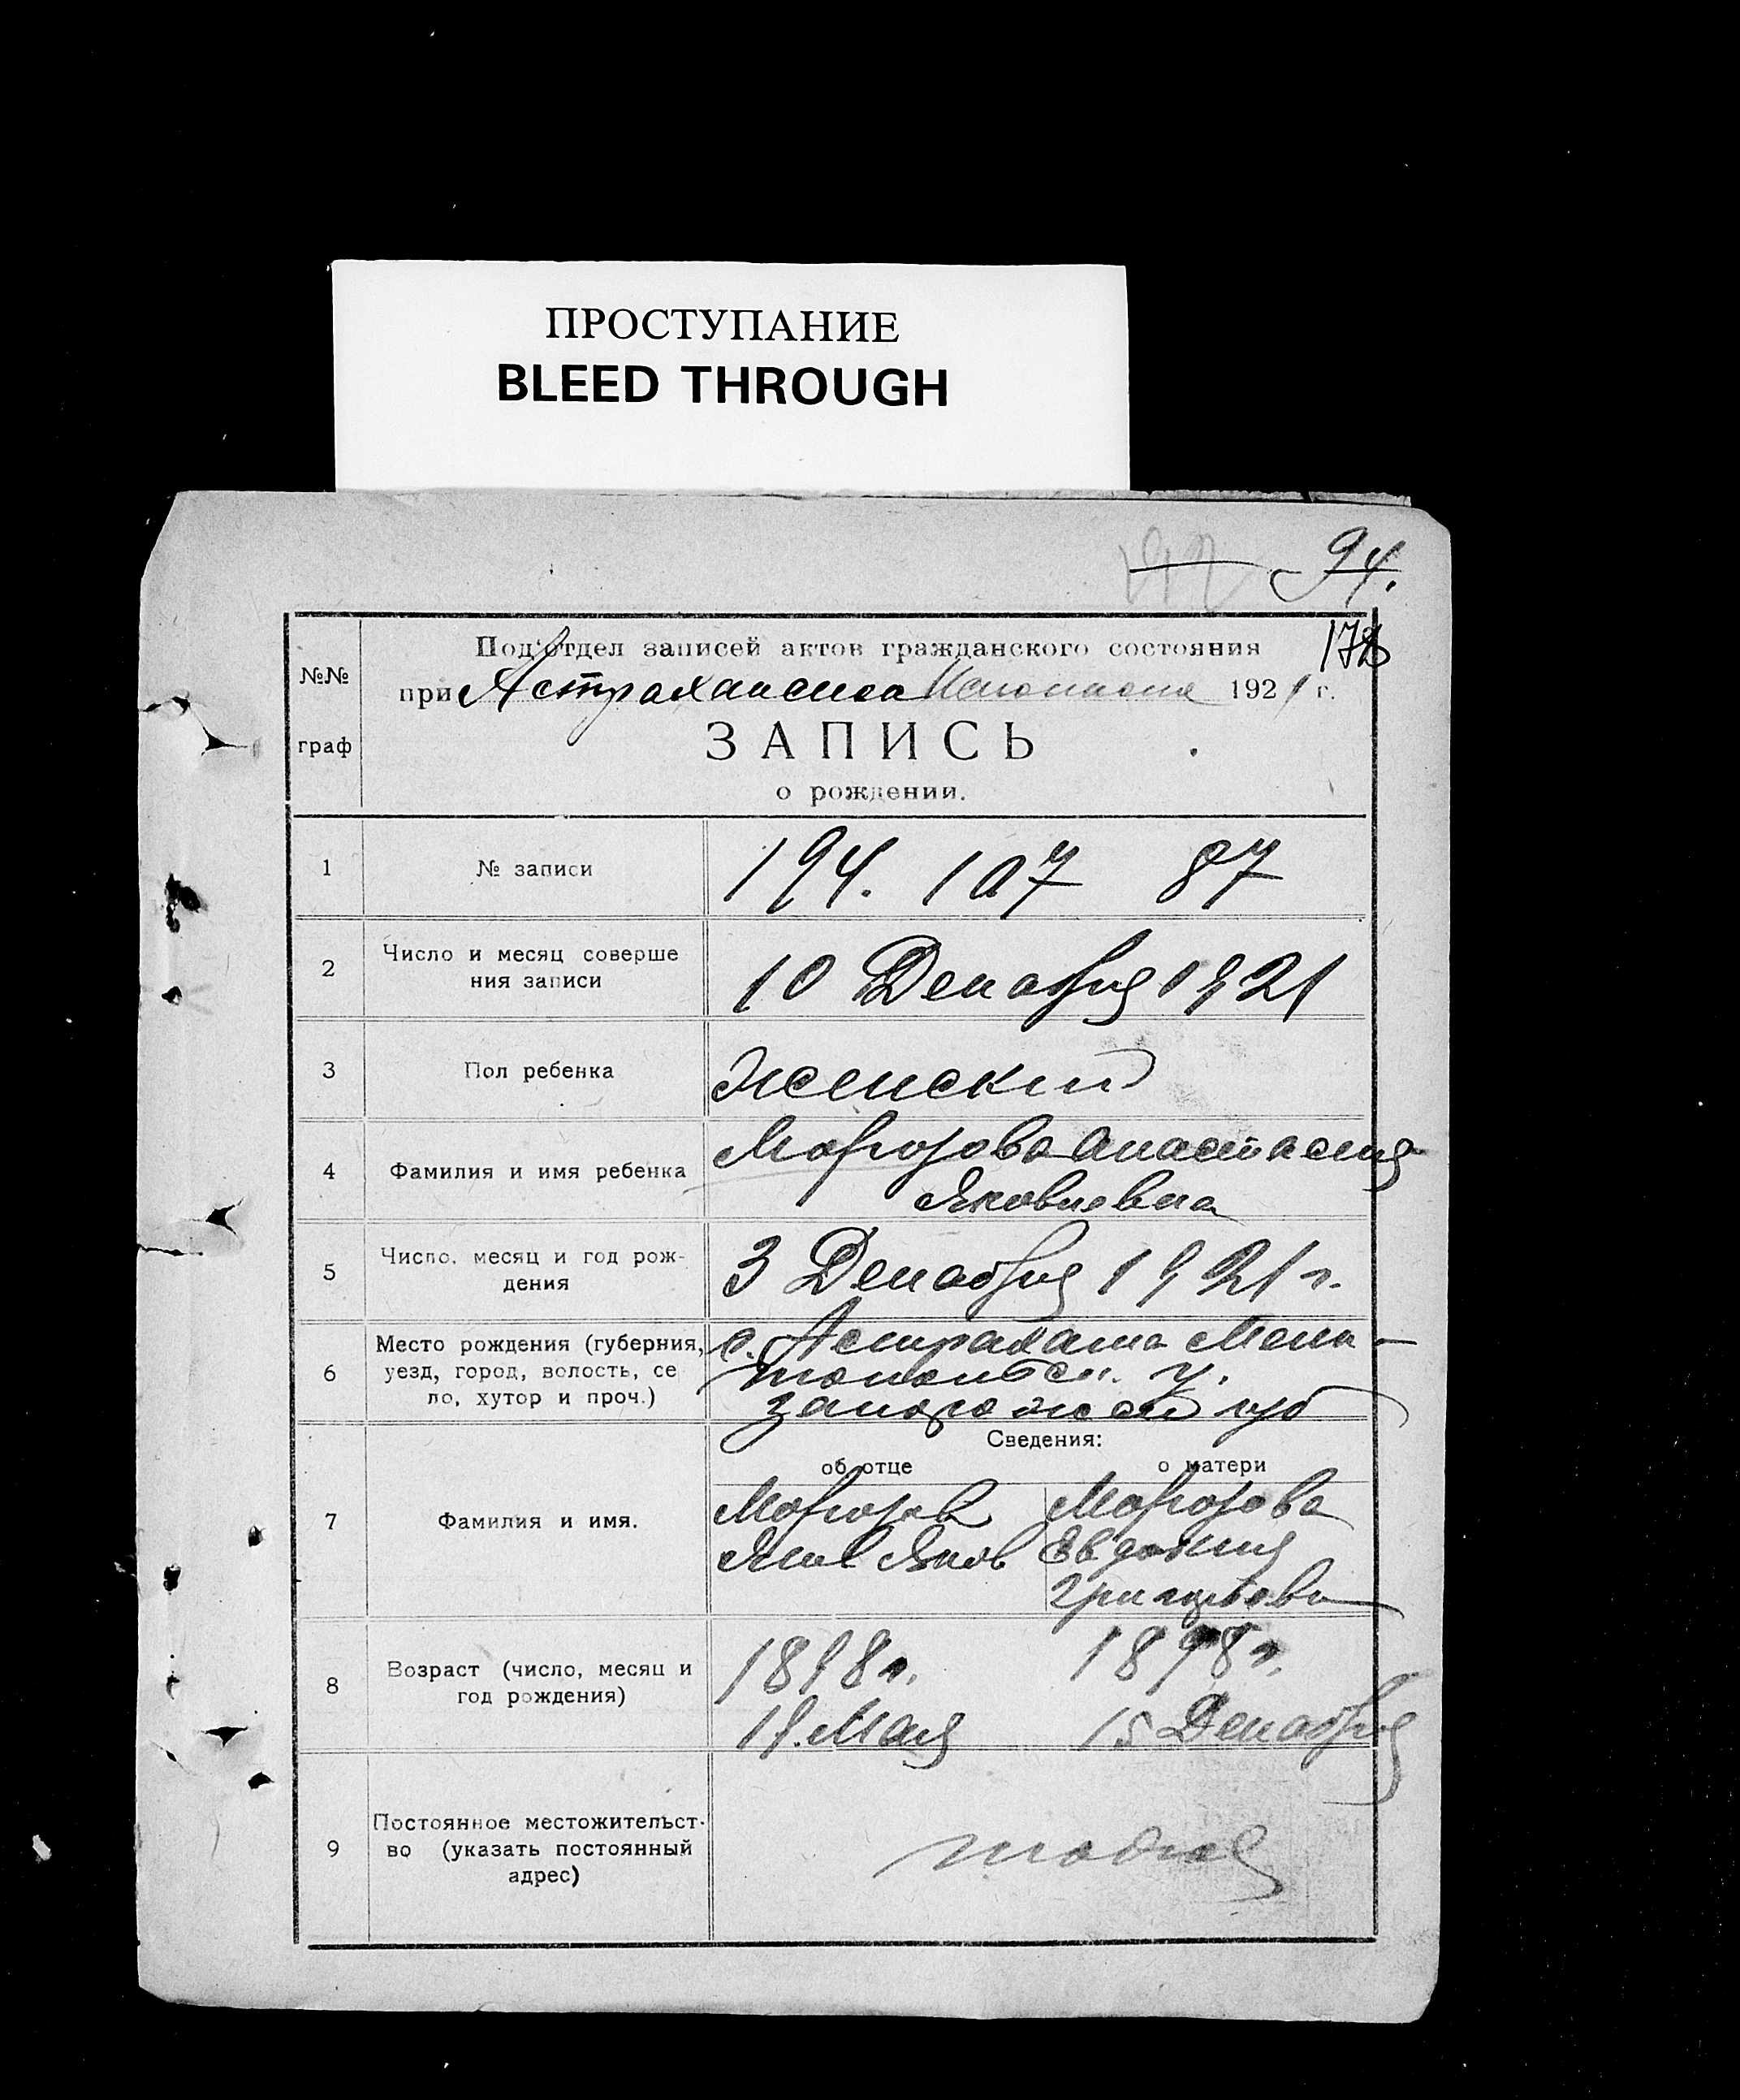 ПРОСТУПАНИЕ
BLEED THROUGH
94.
178
№№
граф
Под'отдел записей актов гражданского состояния
при Астраханском 1921 г.
ЗАПИСЬ
о рождении.
1
№ записи
194. 107 87
2
Число и месяц соверше
ния записи
10 Декабря 1921
3
Пол ребенка
Женский
4
Фамилия и имя ребенка
Морозова Анастасия
Яковлевна
5
Число, месяц и год рож-
дения
3 Декабря 1921 г.
6
Место рождения (губерния,
уезд, город, волость, се
ло, хутор и проч.)
с. Астраханка Мели-
топольск. у.
Запорожской губ
Сведения:
об отце
о матери
7
Фамилия и имя.
Морозов
Яков
Морозова
Евдокия
Григорьевна
8
Возраст (число, месяц и
год рождения)
1898 г.
19. Мая
1898 г.
15 Декабря
9
Постоянное местожительст-
во (указать постоянный
адрес)